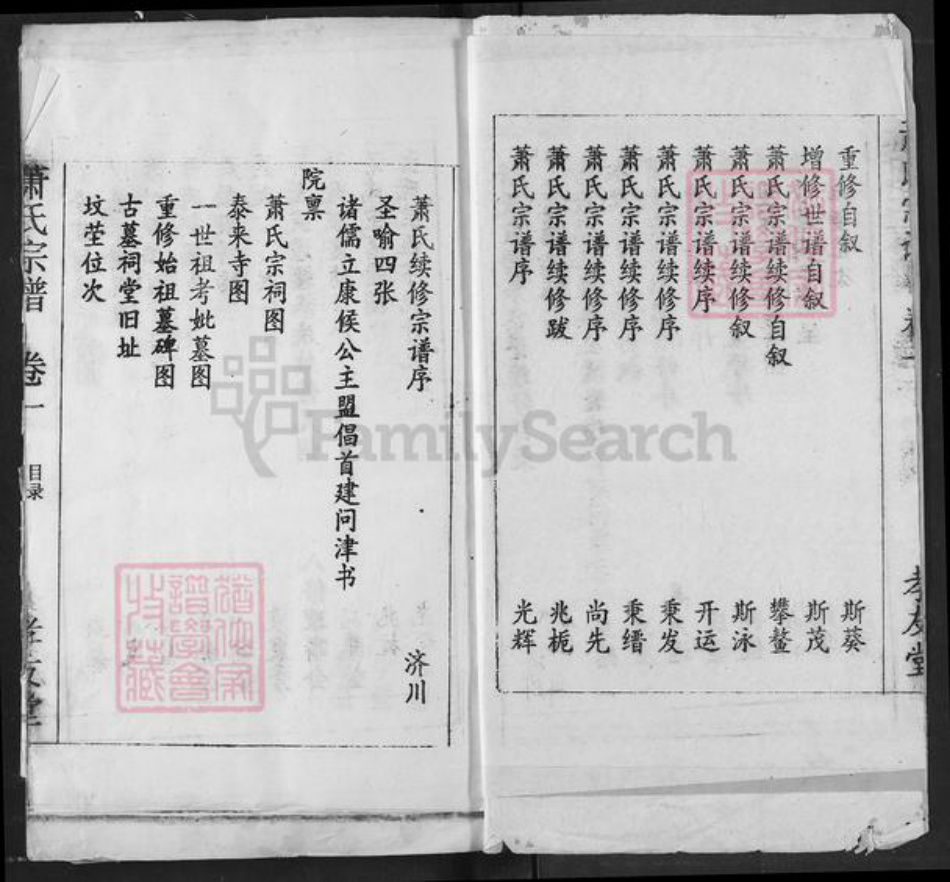 重修自叙 斯葵
增修世谱自叙 斯茂
萧氏宗谱续修自叙 攀鳌
萧氏宗谱续修叙 斯泳
萧氏宗谱续序 开运
萧氏宗谱续修序 秉发
萧氏宗谱续修序 秉缙
萧氏宗谱续修序 尚先
萧氏宗谱续修跋 兆栀
萧氏宗谱序 光辉
萧氏续修宗谱序 济川
圣喻四张
诸儒立康候公主盟倡首建问津书
院禀
萧氏宗祠图
泰来寺图
一世祖考妣墓图
重修始祖墓碑图
古墓祠堂旧址
坟茔位次
萧氏宗谱 卷一 目录 孝友堂
孝友堂
FamilySearch